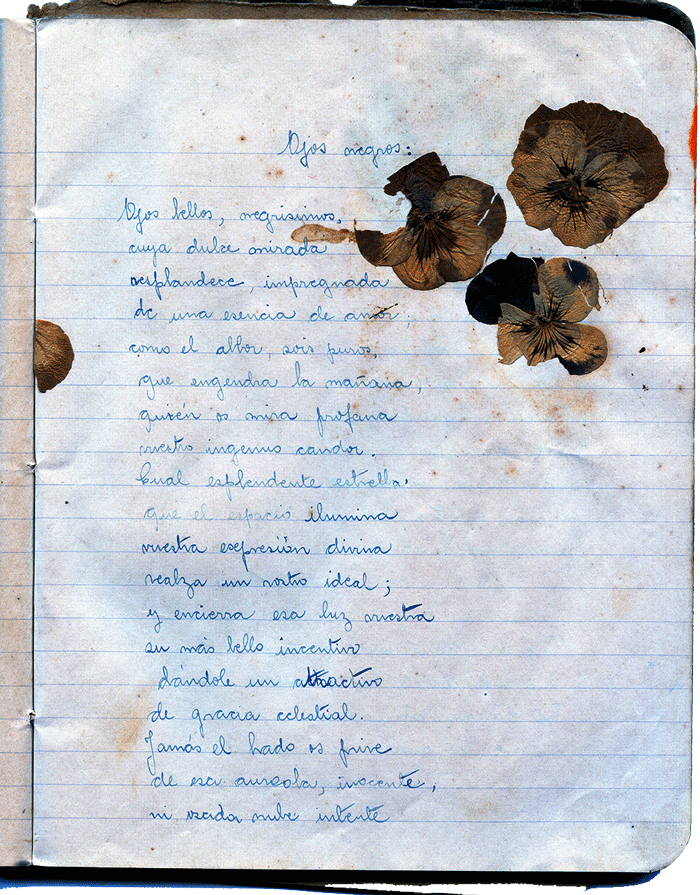 Ojos negros:
Ojos bellos, negrisimos,
cuya dulce mirada
resplandece, impregnada
de una esencia de amor;
como el albor, sois puros,
que engendra la mañana,
quién os mira profana
vuestro ingenuo candor.
Cual esplendente estrella,
que el espacio ilumina
vuestra expresión divina
realza un rostro ideal;
y encierra esa luz vuestra
su más bello incentivo
dándole un atractivo
de gracia celestial.
Jamás el hado os prive
de esa aureola, inocente,
ni osada nube intente